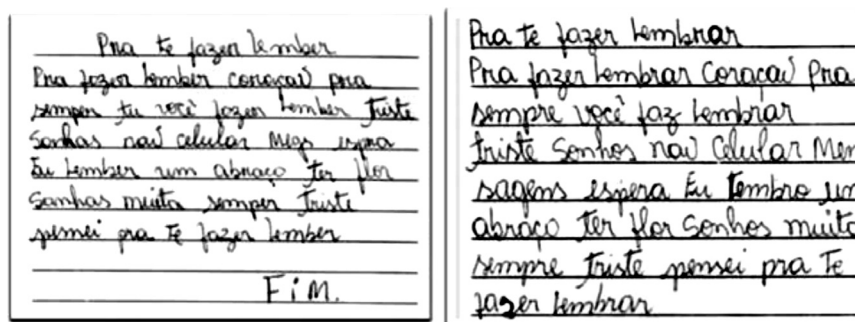 Pra te fazer lember
Pra fazer lember coraçaũ pra
semper tu você fazer lember triste
Sonhas naũ celular Megs espra
Eu Lember um abraço ter flor
Sonhas muita semper triste
pensei pra te fazer lember
FiM.
Pra te fazer Lembrar
Pra fazer Lembrar Coraçaũ Pra
sempre você faz Lembrar
triste Sonhos naũ Celular Men
sagens espera Eu Lembro um
abraço ter flor Sonhos muito
sempre triste pensei pra Te
fazer Lembrar